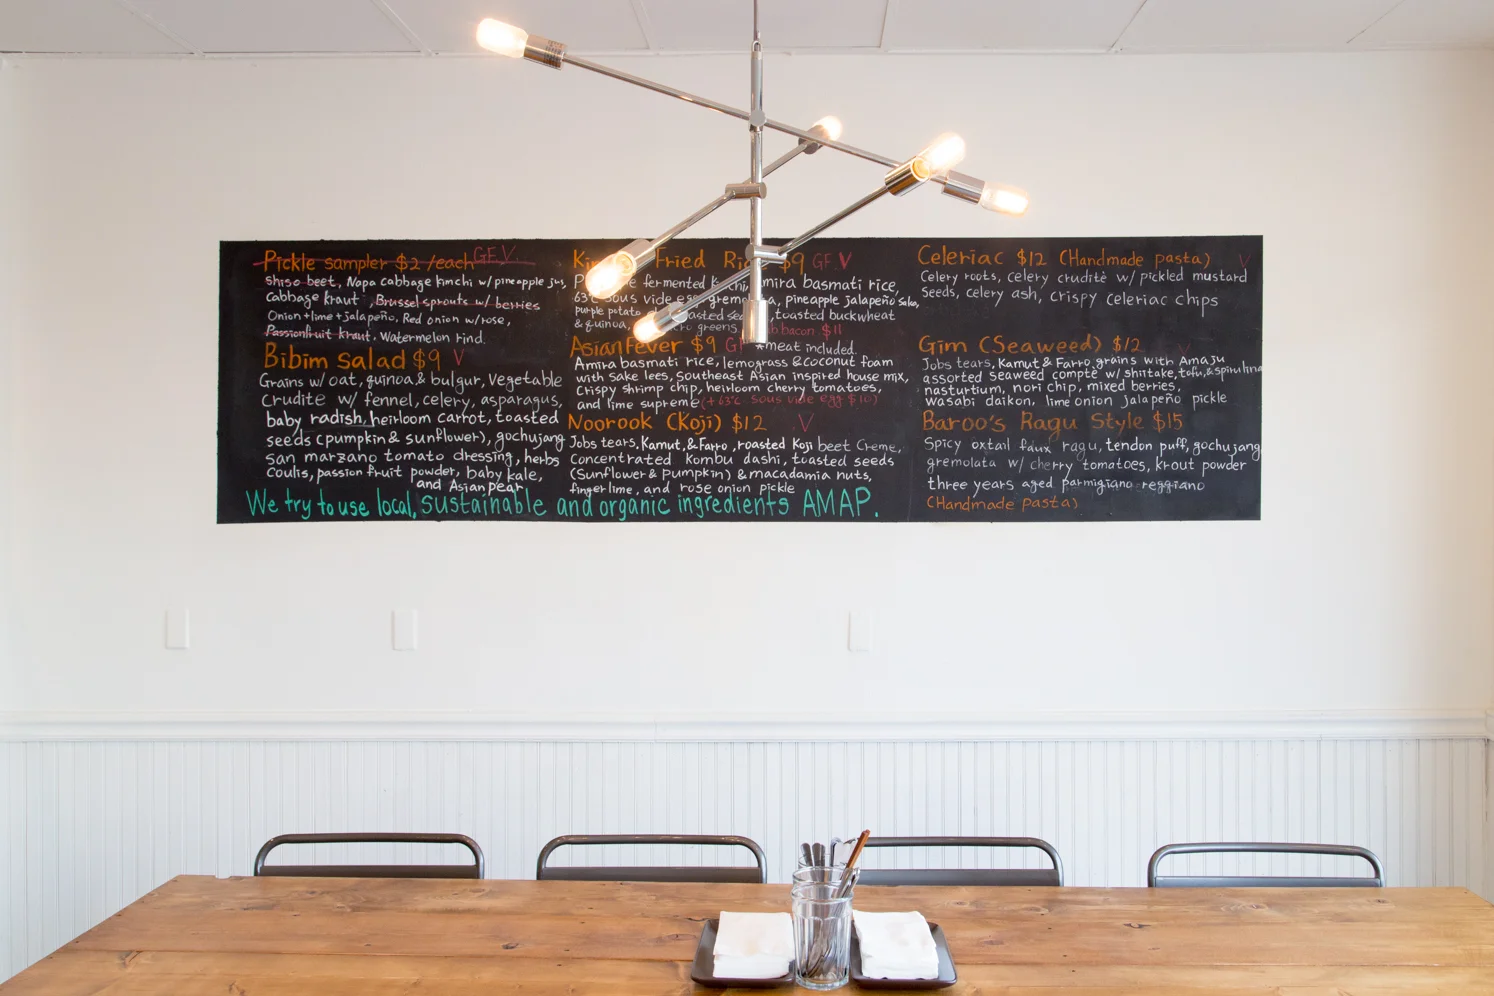 Pickle sampler $2 /each GF.V
shiso beet, Napa cabbage kimchi w/pineapple jus,
Cabbage kraut, Brussel sprouts w/ berries
Onion+lime+jalapeño, Red onion w/rose,
Passionfruit kraut, Watermelon rind.
Bibim Salad $9 V
Grains w/ oat, quinoa & bulgur, Vegetable
Crudite w/ fennel, celery, asparagus,
baby radish, heirloom carrot, toasted
seeds (pumpkin & sunflower), gochujang
San marzano tomato dressing, herbs
Coulis, passion fruit powder, baby kale,
and Asian pear
Fried $9 GF V
fermented basmati rice,
63°C sous vide pineapple jalapeño salsa,
purple potato toasted buckwheat
& quinoa, greens. bacon $11
Asian Fever $9 *meat included.
Amira basmati rice, lemongrass & coconut foam
with sake lees, Southeast Asian inspired house mix,
Crispy shrimp chip, heirloom cherry tomatoes,
and lime supreme (+63°C sous vide egg $10)
Noorook (Koji) $12 V
Jobs tears, Kamut, & Farro, roasted Koji beet Creme,
Concentrated Kombu dashi, toasted seeds
(Sunflower & Pumpkin) & macadamia nuts,
finger lime, and rose onion pickle
Celeriac $12 (Handmade pasta) V
Celery roots, celery crudité w/ pickled mustard
Seeds, celery ash, crispy celeriac chips
Gim (Seaweed) $12
Jobs tears, Kamut & Farro grains with Amaju
assorted seaweed compte w/ shiitake, tofu, & spirulina
nasturtium, nori chip, mixed berries,
wasabi daikon, lime onion jalapeño pickle
Baroo's Ragu Style $15
Spicy oxtail faux ragu, tendon puff, gochujang
gremolata w/ cherry tomatoes, krout powder
three years aged parmigiano reggiano
(Handmade pasta)
We try to use local, sustainable and organic ingredients AMAP.